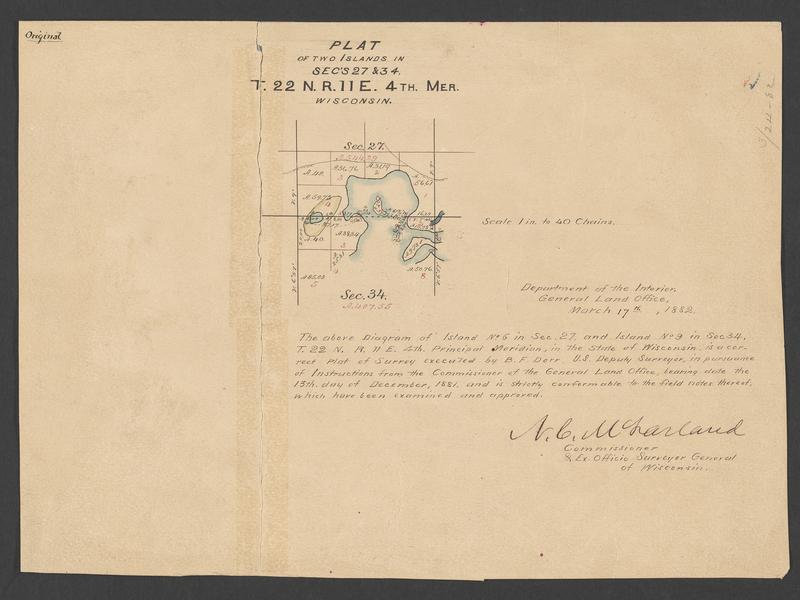 Original
PLAT
OF TWO ISLANDS IN
SEC'S 27 & 34.
T. 22 N. R. 11 E. 4TH. MER.
WISCONSIN.
3/24-82
Sec. 27.
A.40.
3
2
1
4
A.40.
3
5
8
Sec. 34.
A.497.55
Scale 1 in. to 40 Chains.
Department of the Interior,
General Land Office,
March 17th, 1882.
The above Diagram of Island No 6 in Sec. 27, and Island No 9 in Sec 34,
T. 22 N. R. 11 E. 4th. Principal Meridian, in the State of Wisconsin, is a cor-
rect Plat of Survey executed by B. F. Dorr, U.S. Deputy Surveyor, in pursuance
of Instructions from the Commissioner of the General Land Office, bearing date the
13th. day of December, 1881. and is strictly conformable to the field notes thereof,
which have been examined and approved.
N. C. McFarland
Commissioner
& Ex. Officio Surveyor General
of Wisconsin.